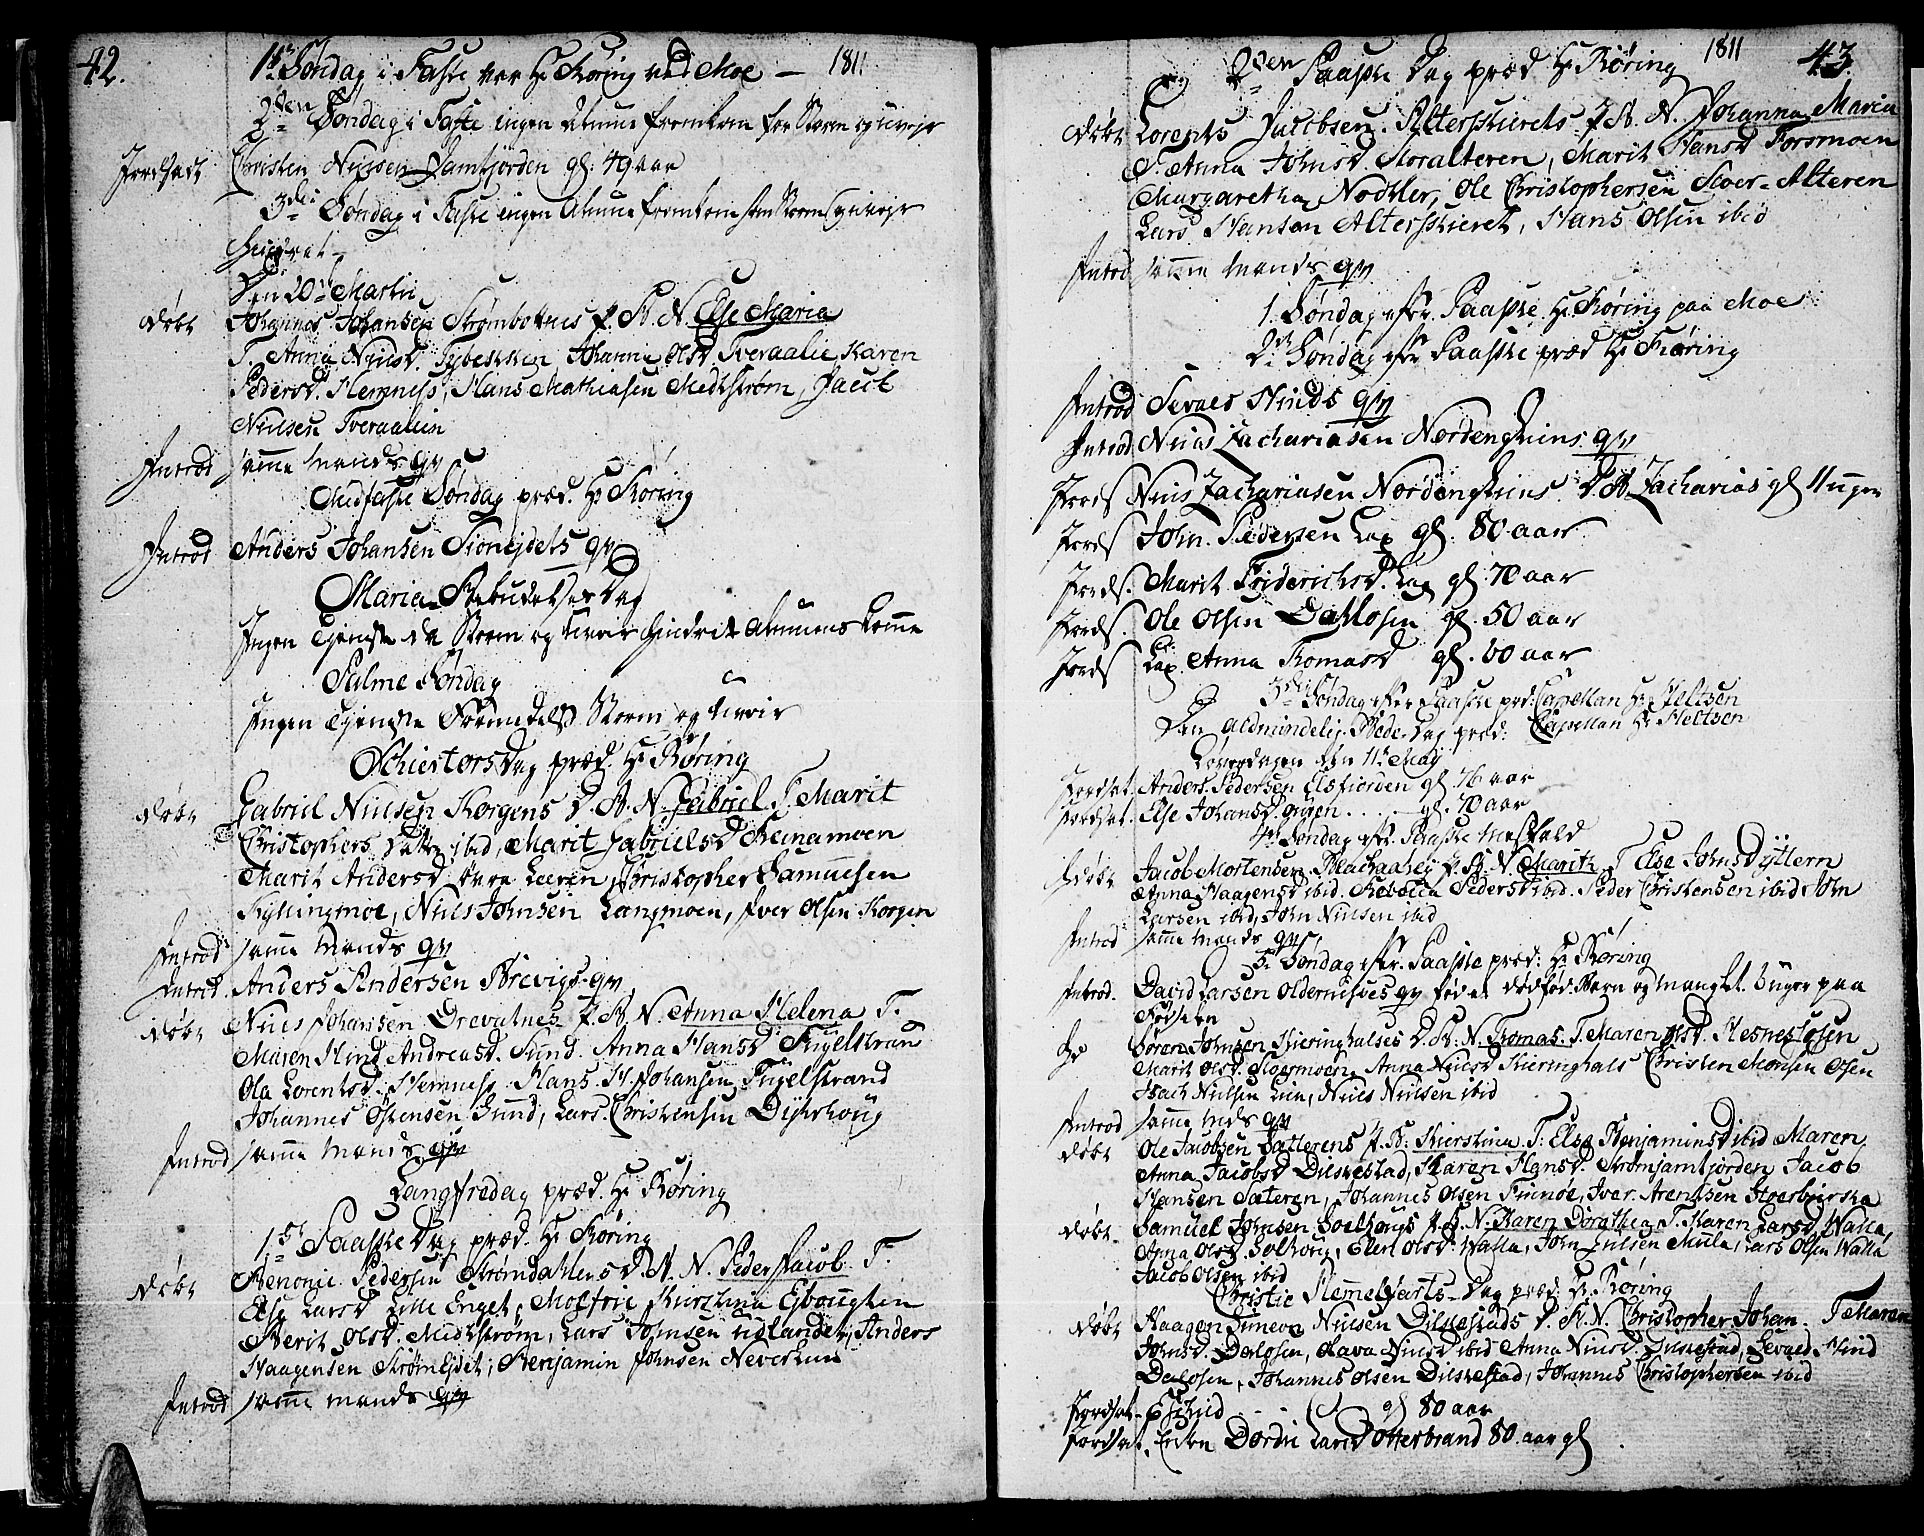 42.
1ste Søndag i Faste var Hr Røring ved Moe — 1811
2den Søndag i Faste ingen Almue fremkom for Storm og uvejr
Jordfæst Christen Nilssen Jamtjorden gl. 49 aar
3die Søndag i Faste ingen Almue fremkom Storm og uvejr
Den 20de Martii
Døbt Johannes Johansen Strømbotnes P. B. N. Else Maria
T. Anna Nilsd. Johanna Olsd Tveraalie Karen
Pedersd. Hemnes, Hans Mathiasen Midtstrøm, Jacob
Nielsen Tveraalien
Introd samme Mands qv
Midfaste Søndag præd. Hr Røring
Introd Anders Johansen Sionejdets qv
Maria Bebudelses Dag
Ingen Tjeneste da Storm og uveir hindret Almuens komme
Palme Søndag
Ingen Tjeneste Formedelst Storm og uveir
Schiertorsdag præd. Hr Røring
Døbt Gabriel Nielsen Korgens D. B. N. Gabriel T. Marit
Christophers Datter ibid, Marit Gabrielsd Reinamoen
Marit Andersd Leeren, Christopher Samuelsen
Kyllingmoe, Niels Johnsen Langmoen, Iver Olsen Korgen
Introd samme Mands qv
Introd. Anders Andersen Brevigs qv
Døbt Niels Johansen Drevatnes P. B. N. Anna Helena T.
Maren Hind Andreasd. Sund. Anna Hansd Fugelstran
Ola Lorentsd. Hemness. Hans H. Johansen Fugelstrand
Johannes Sund, Lars Christensen Dyhshoug
Introd samme Mands qv
Langfredag præd. Hr Røring
1ste Paaske Dag præd. Hr Røring
Døbt Benonie Pedersen Strømdahlens D. B. N. Peder Jacob T.
Else Larsd Lille Enget, Kierstina
Berit Olsd. Midtstrøm, Lars Johnsen Utlandet, Anders
Haagensen Strømejdet, Benjamin Johnsen Neverlien
Introd samme mands qv
2den Paaske Dag præd Hr Røring 1811 43.
Døbt Lorents Jacobsen Alterskierets P. B. N. Johanna Maria
T. Anna Johnsd Storalteren, Marit Hansd Forsmoen
Margaretha Nodtler, Ole Christophersen Stor-Alteren
Lars Hansen Alterskieret, Hans Olsen ibid
Introd samme Mands qv
1. Søndag efter Paaske Hr Røring paa Moe
2den Søndag efter Paaske præd Hr Røring
Introd Sevaes Hinds qv
Introd Niels Zachariasen Nordengskins qv
Jords Niels Zachariasen Nordengskins D. B. Zacharias gl 11 uger
Jords John Pedersen Lap gl. 80 aar
Jords. Marit Friderichsd. Lap gl. 70 aar
Jords. Ole Olsen Dahlosen gl. 50 aar
Jords Lap. Anna Tomasd gl. 60 aar
3die Søndag efter Paaske præd: Capellan Hr Heltsen
Den Almindelig Bede Dag præd: Capellan Hr Heltsen
Løverdagen den 11te May
Jordfæst. Anders Pedersen Elsfiorden gl 76 aar
Jordfæst. Else Johansd gl. 70 aar
4de Søndag efter Paaske Messefald
Døbt Jacob Mortensen P. B. N. Marith T Else Johnsd Yttern
Anna Haagensd ibid Rebecca Pedersd ibid. Peder Christensen ibid John
Larsen ibid, John Nielsen ibid
Introd samme Mands qv
5te Søndag efter Paaske præd: Hr Røring
Introd. David Larsen Oldernesses qv født et dødfød Barn og manglet 2 uger paa
Fødselen
Søren Johnsen Kieringhalses D. B. N. Tomas. T. Maren Olsd. Hesneslosen
Marit Olsd Skogsmoen, Anna Nielsd Kieringhals Christen Monsen Olsen
Isach Nielsen Lien, Niels Nielsen ibid
Introd samme Mds qv
Døbt Ole Jacobsen Sætterens P. B: Kierstina. T. Else Benjaminsd ibid Maren
Anna Jacobsd Dilkestad, Karen Hansd. Strømjamtjorden Jacob
Hansen Sæteren, Johannes Olsen Finnøe, Iver Arentsen
Døbt Samuel Johnsen P. B. N. Karen Dorothea T. Karen Larsd Walla
Anna Olsd, Elen Olsd Walla, John Julsen Mula, Lars Olsen Walla
Jacob Olsen ibid
Christie Himmelfarts-Dag præd: Hr Røring
Døbt Haagen Simeon Nielsen Dilkestads D. B. N. Christopher Johan. T Maren
Johnsd. Dalosen, Lava Nielsd ibid Anna Nielsd. Dilkestad, Sevald Hind
Dalosen, Johannes Olsen Dilkestad, Johannes Christophersen ibid
Jordfæst. gl 80 aar
Jordfæst. Enken Dordie Larsd Otterbrand 80 aar gl